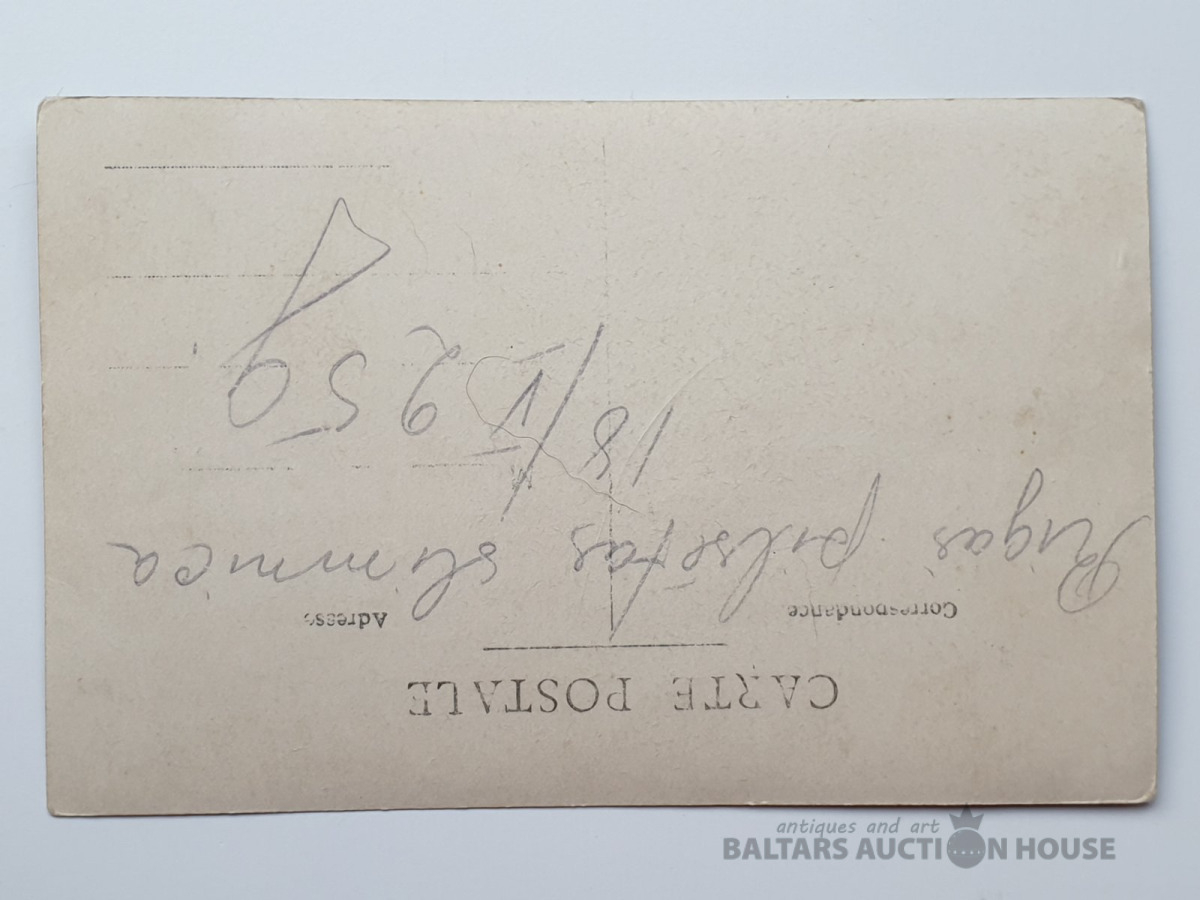 CARTE POSTALE
Correspondance
Adresse
Rigas pilsētas slimnica
18/V 25 g
antiques and art
BALTARS AUCTION HOUSE